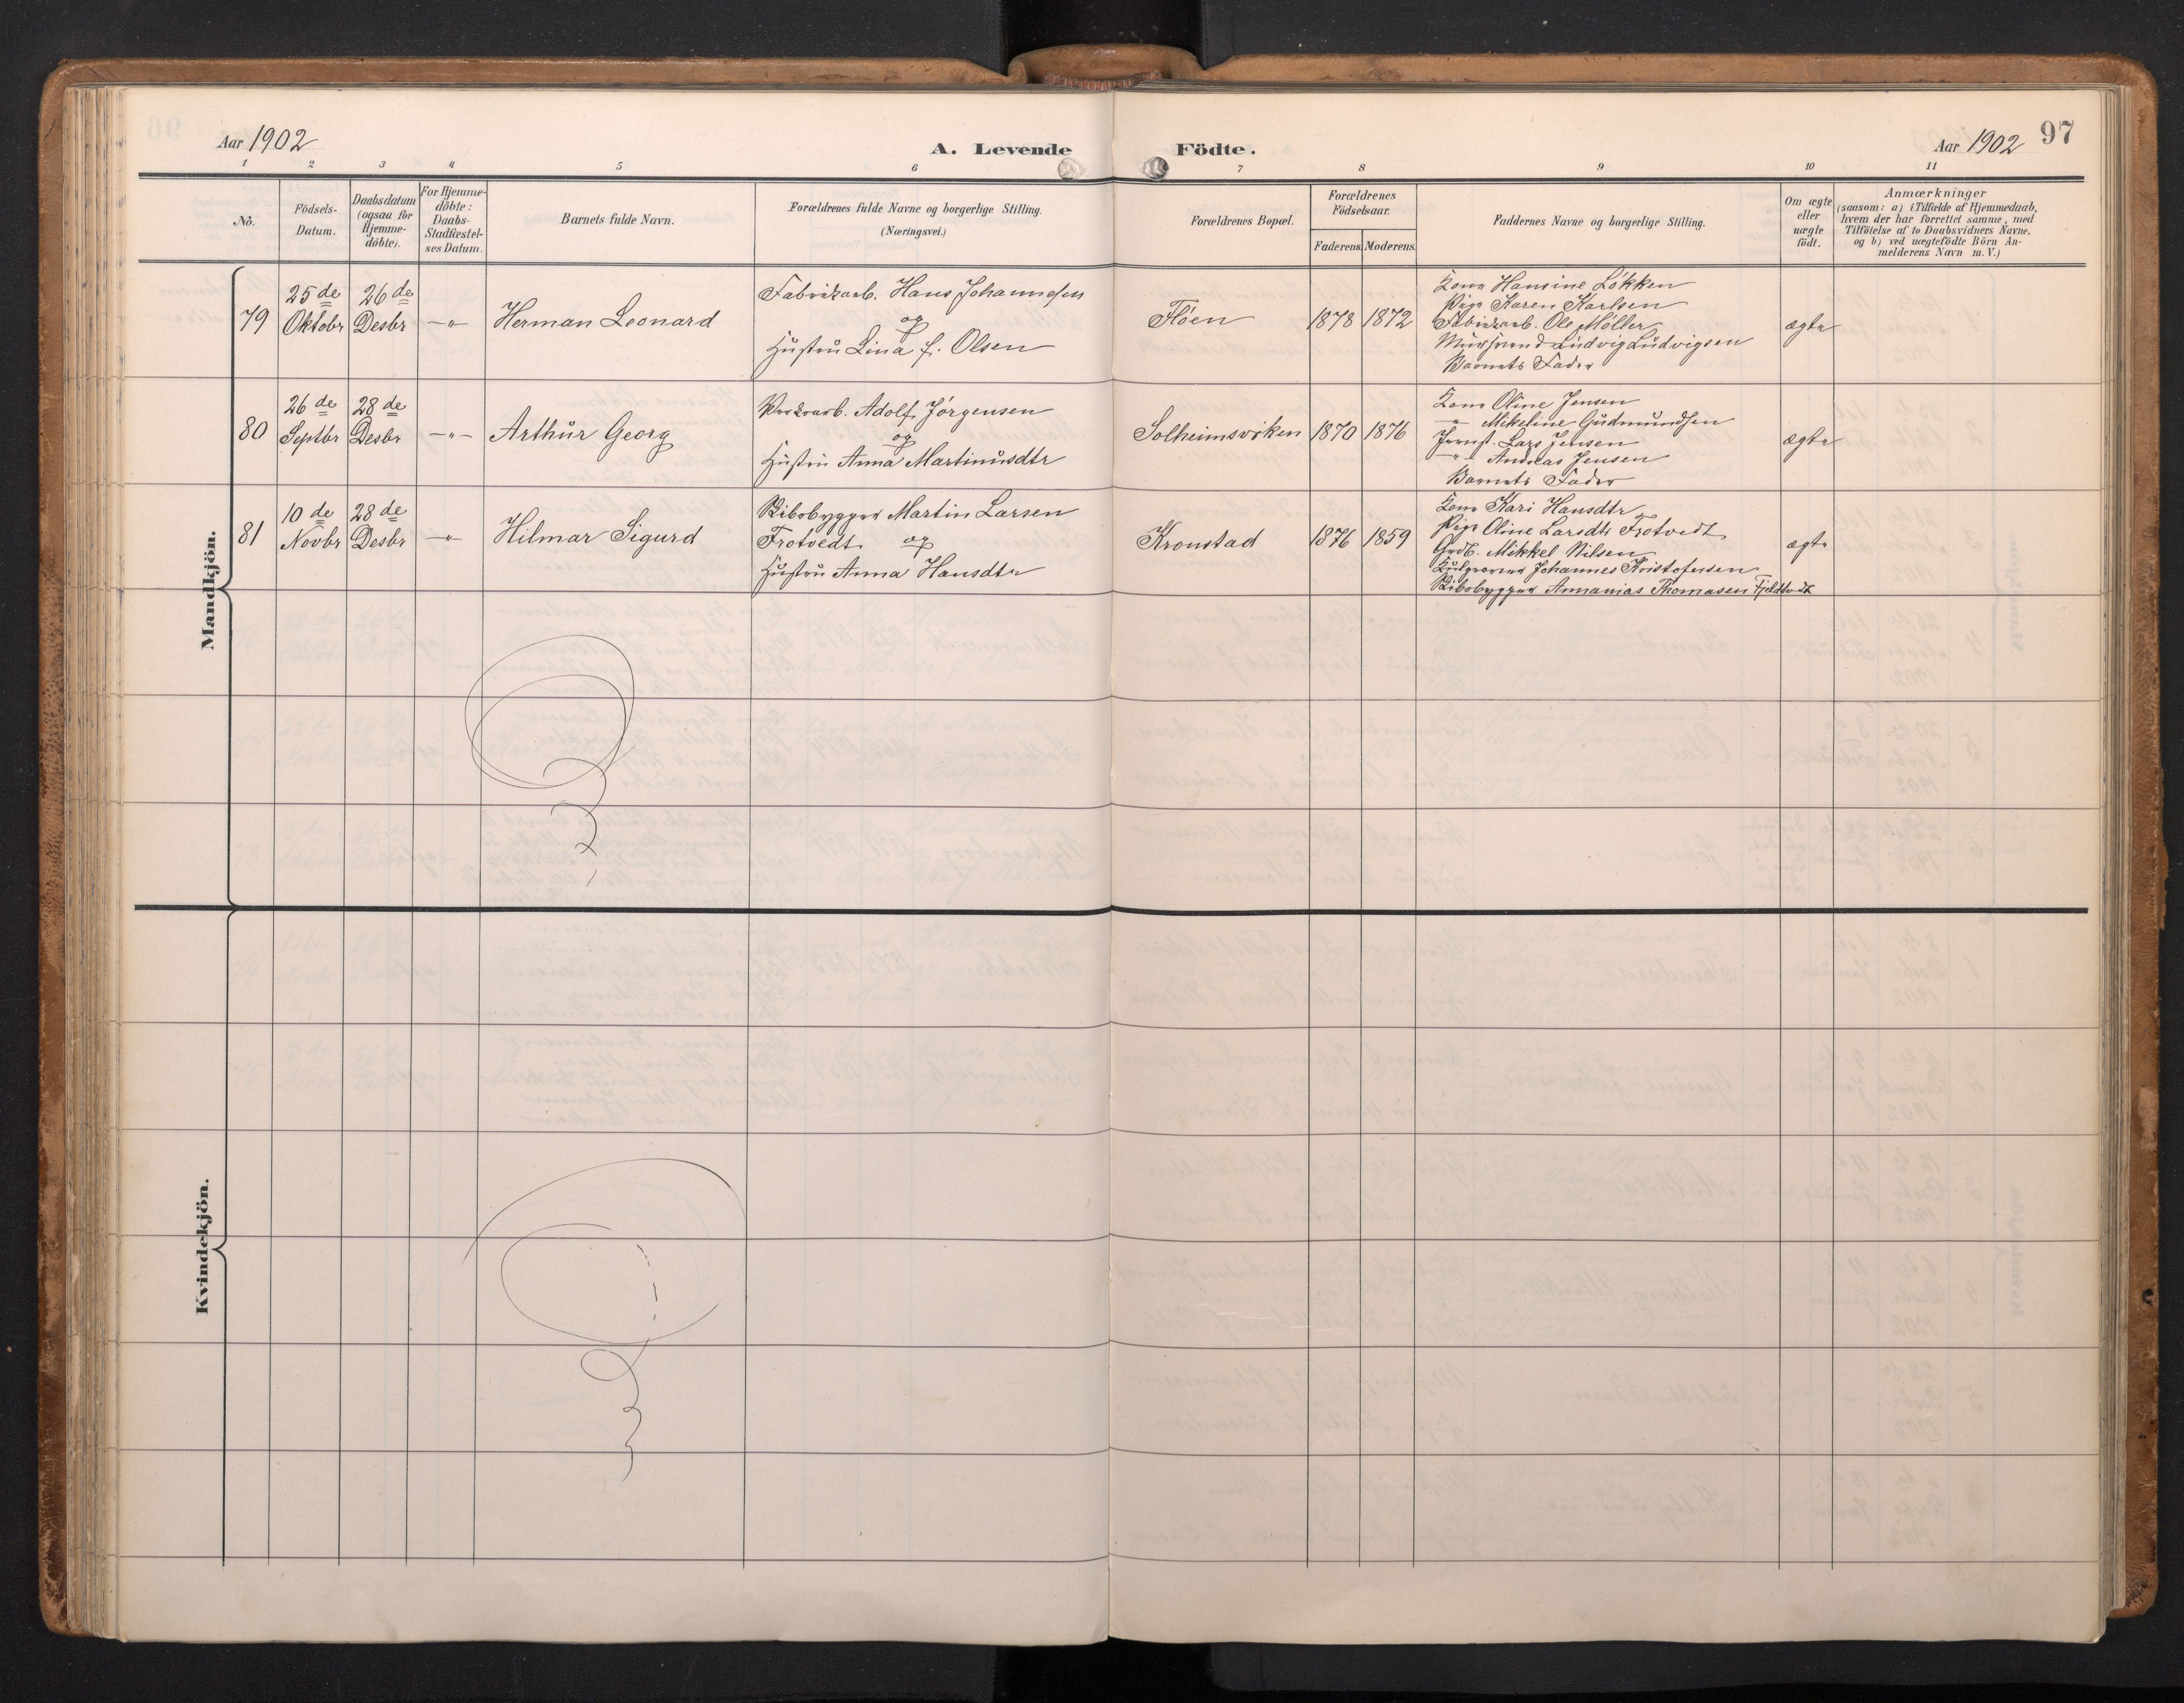 Aar 1902
A. Levende Födte.
Aar 1902 97
1 2 3 4 5 6 7 8 9 10 11
No.
Födsels-
Datum.
Daabsdatum
(ogsaa for
Hjemme-
döbte).
For Hjemme-
döbte:
Daabs-
Stadfæstel-
ses Datum.
Barnets fulde Navn.
Forældrenes fulde Navne og borgerlige Stilling.
(Næringsvei.)
Forældrenes Bopæl.
Forældrenes
Födselsaar.
Faderens. Moderens.
Faddernes Navne og borgerlige Stilling.
Om ægte
eller
uægte
födt.
Anmærkninger
(saasom: a) i Tilfælde af Hjemmedaab,
hvem der har forrettet samme, med
Tilföielse af to Daabsvidners Navne.
og b) ved uægtefödte Börn An-
melderens Navn m. V.)
Mandkjön.
79
25 de
Oktobr
26 de
Desbr
—"—
Herman Leonard
Fabrikarb. Hans Johannesen
og
Hustru Lina f. Olsen
Flöen
1878 1872
Kone Hansine Løkken
Pige Karen Karlsen
Fabrikarb. Ole Møller
Mursvend Ludvig Ludvigsen
Barnets Fader
ægte
80
26 de
Septbr
28 de
Desbr
—"—
Arthur Georg
Værksarb. Adolf Jørgensen
og
Hustru Anna Martinusdtr
Solheimsviken
1870 1876
Kone Oline Jensen
" Mikeline Gudmundsen
Lars Jensen
—"— Andreas Jensen
Barnets Fader
ægte
81
10 de
Novbr
28 de
Desbr
—"—
Hilmar Sigurd
Skibsbygger Martin Larsen
Frotvedt og
Hustru Anna Hansdtr
Kronstad
1876 1859
Kone Kari Hansdtr
Pige Oline Larsdtr Frotvedt
Grdb. Mikkel Nilsen
Johannes Kristofersen
Skibsbygger Annanias Thomasen Fjeldtvedt
ægte
Kvindekjön.